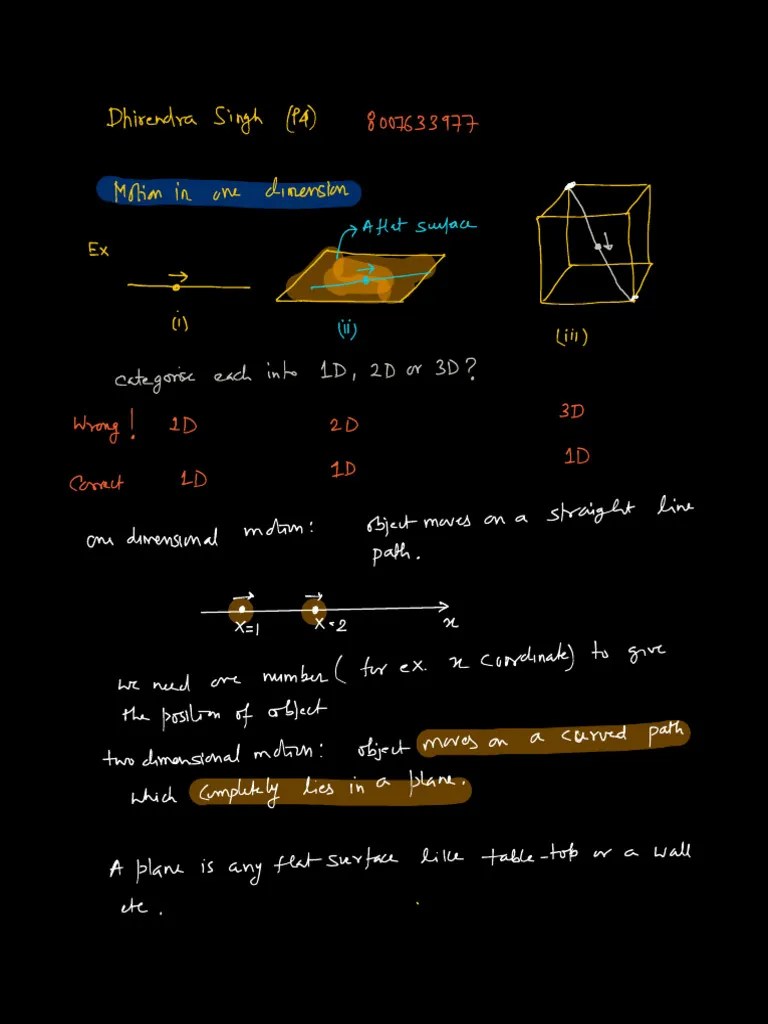 Dhirendra Singh (P4) 8007633977
Motion in one dimension
A flat surface
Ex
(i) (ii) (iii)
categorise each into 1D, 2D or 3D?
Wrong! 2D 2D 3D
Correct 1D 1D 1D
one dimensional motion: object moves on a straight line
path.
x=1 x=2 x
we need one number (for ex. x coordinate) to give
the position of object
two dimensional motion: object moves on a curved path
which completely lies in a plane.
A plane is any flat surface like table-top or a wall
etc.